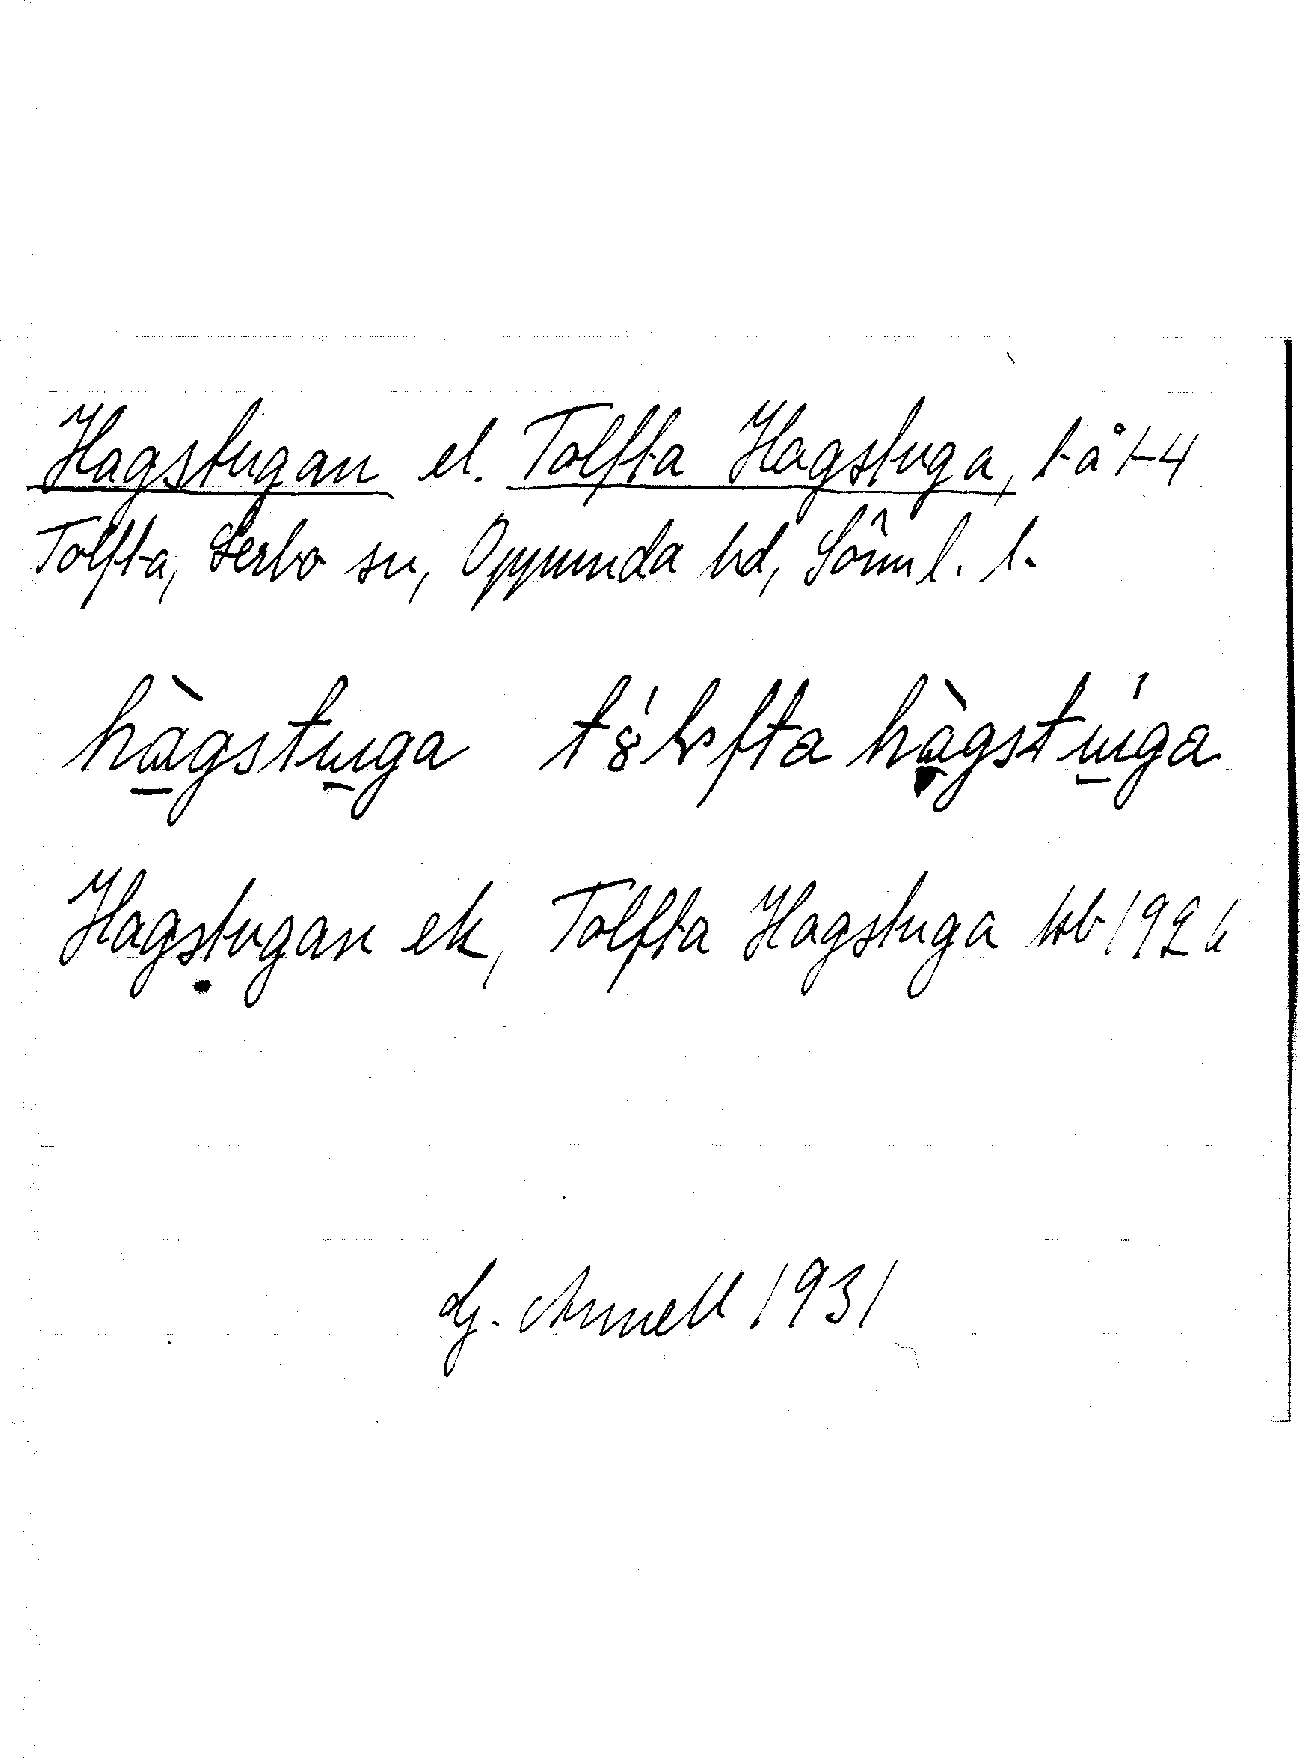 Hagstugan el. Tolfta Hagstuga, t å 1-4
Tolfta, Lerbo sn, Oppunda hd, Sörml. l.
hàgstuga tólfta hàgstúga
Hagstugan ek, Tolfta Hagstuga jbb 1926
G. Annell 1931